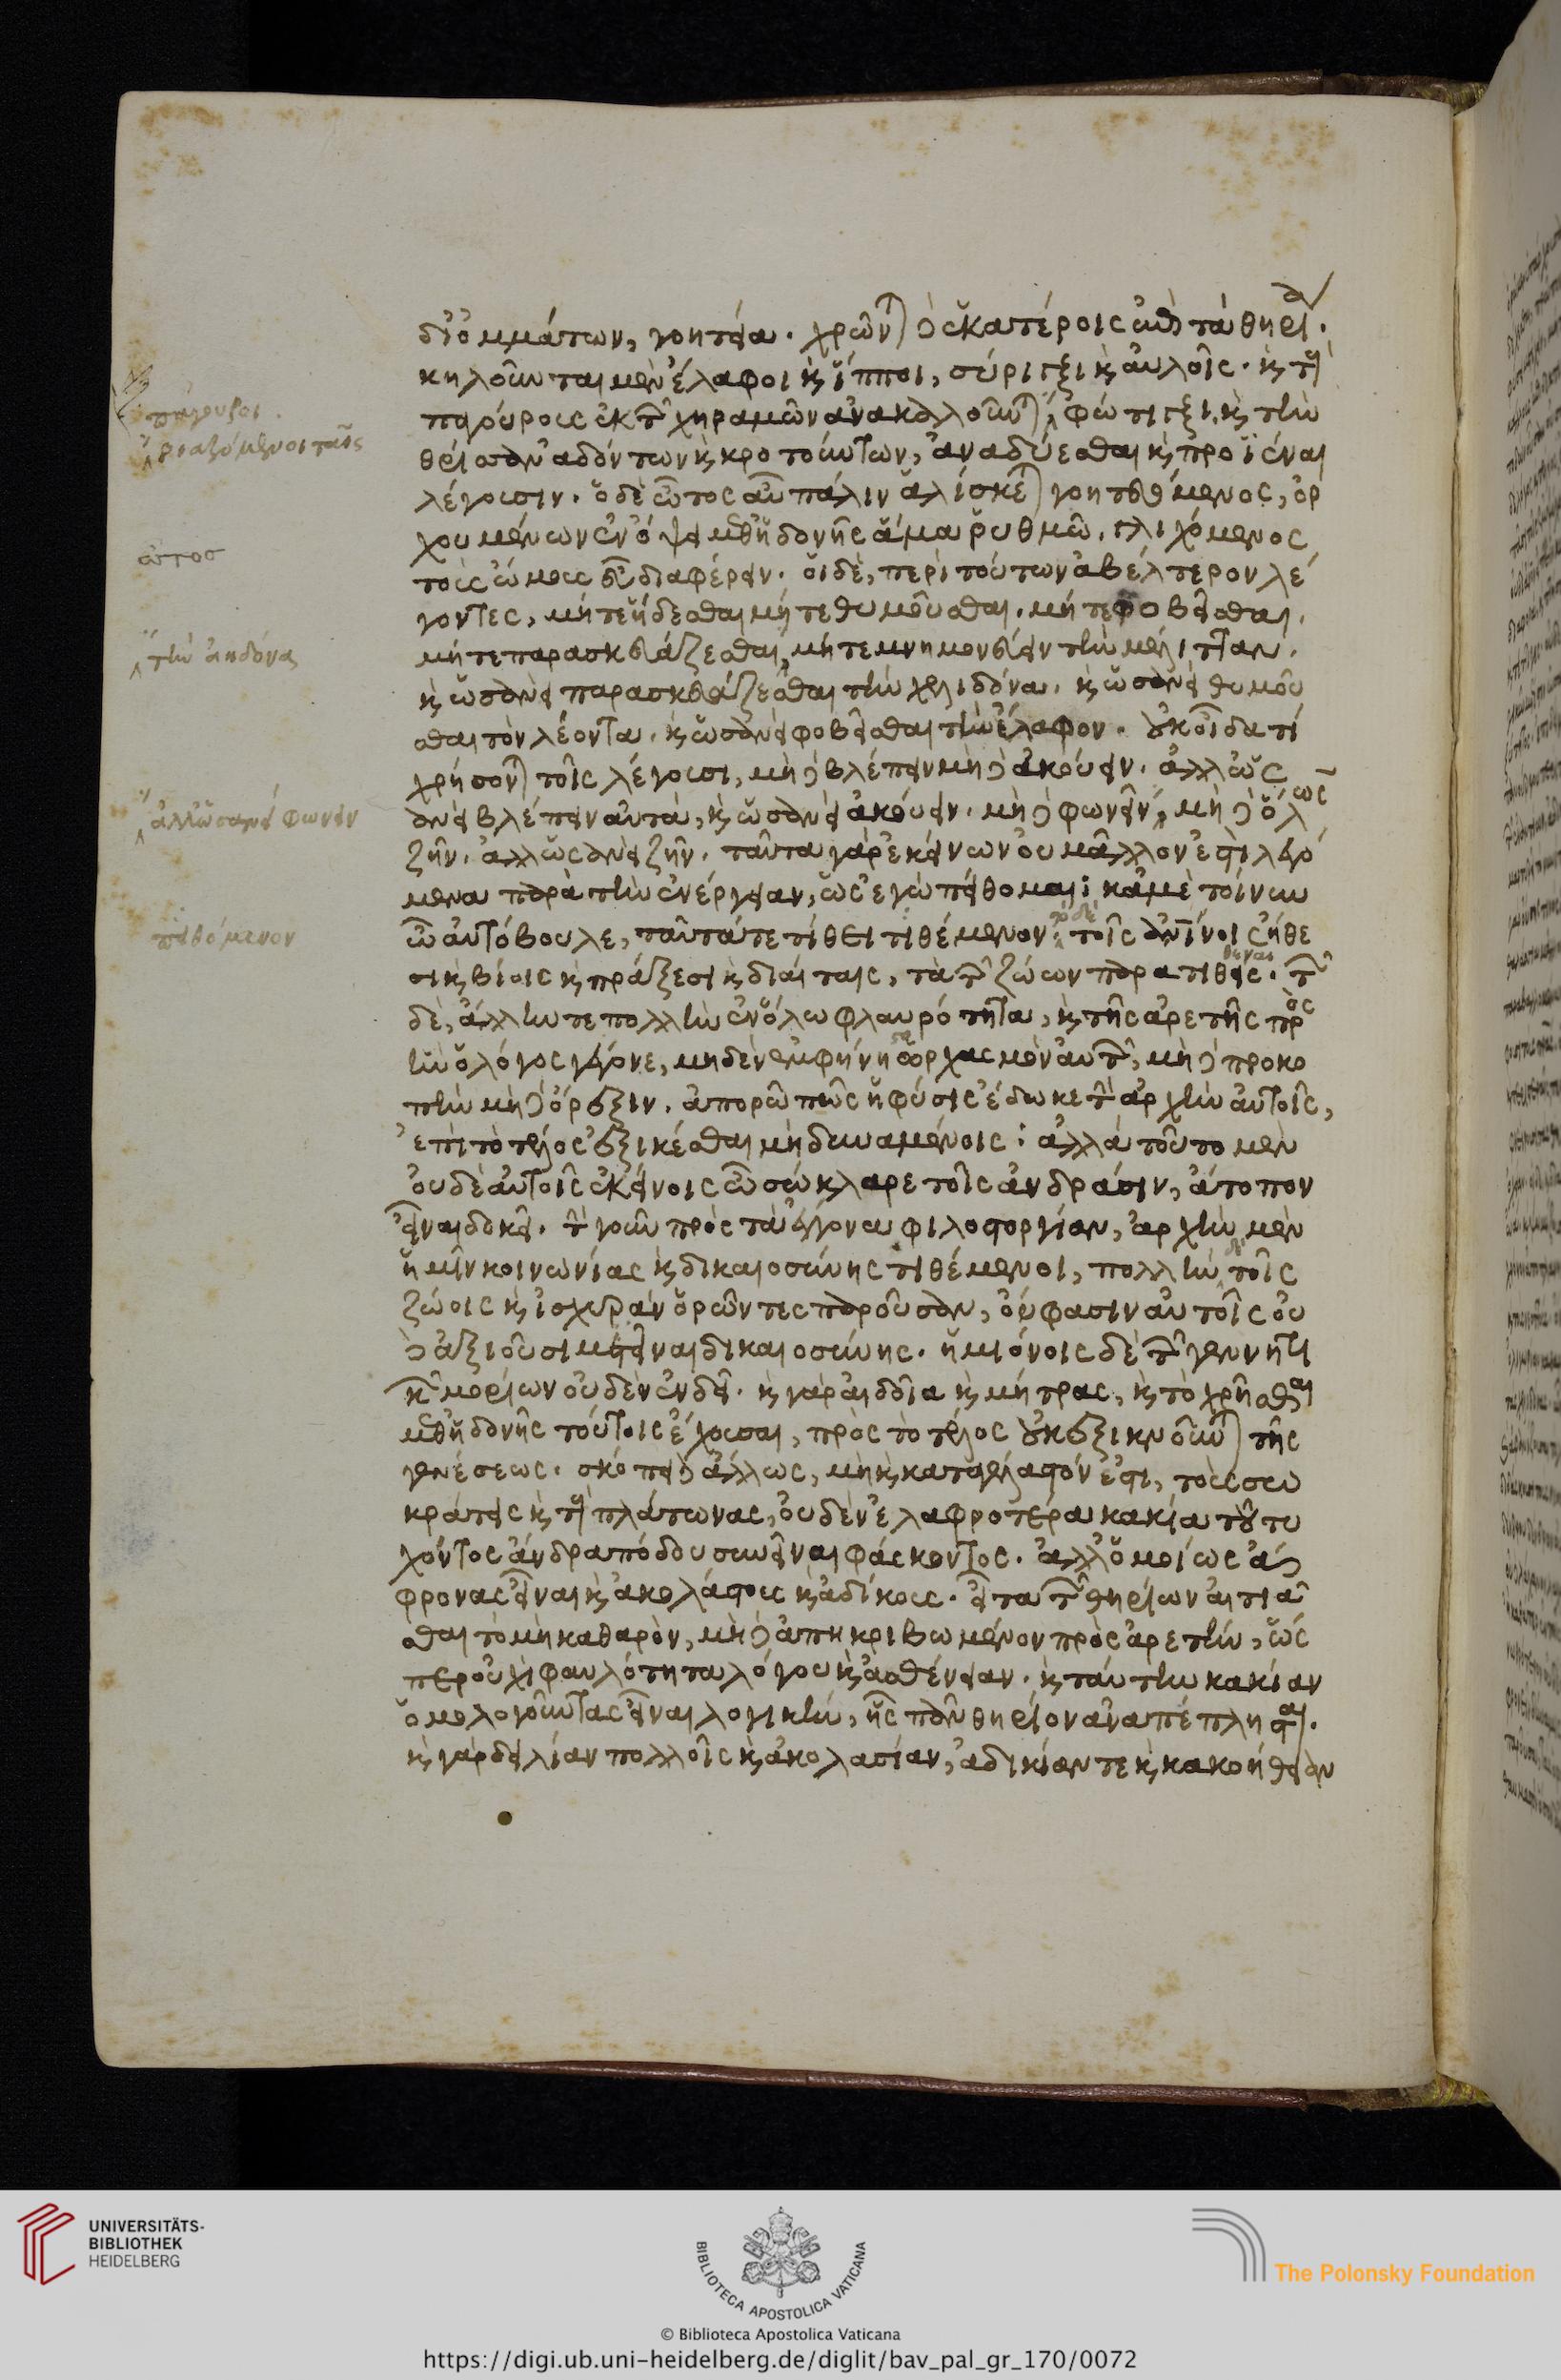 πάγουροι.
βιαζόμενοι ταῖς
ὦτος
τὴν ἀηδόνα
ἀλλ' ὡσανεὶ φωνεῖν
πειθόμενον
δι' ὀμμάτων, γοητεία. χρῶνται δὲ ἑκατέροις ἐπὶ τὰ θηρία.
κηλοῦνται μὲν ἔλαφοι καὶ ἵπποι, σύριγξι καὶ αὐλοῖς. καὶ τοὺς
παγούρους ἐκ τῶν χηραμῶν ἀνακαλοῦνται φώτιγξι. καὶ τὴν
θρίσσαν ᾀδόντων καὶ κροτούντων, ἀναδύεσθαι καὶ προϊέναι
λέγουσιν. ὁ δὲ ὦτος αὖ πάλιν ἁλίσκεται γοητευόμενος, ὀρ
χουμένων ἐν ὄψει μεθ' ἡδονῆς ἅμα ῥυθμῷ. γλιχόμενος
τοὺς ὤμους συνδιαφέρειν. οἱ δὲ, περὶ τούτων ἀβέλτερον λέ
γοντες, μήτε ἥδεσθαι μήτε θυμοῦσθαι. μήτε φοβεῖσθαι.
μήτε παρασκευάζεσθαι, μήτε μνημονεύειν τὴν μέλιτταν.
καὶ ὡσανεὶ παρασκευάζεσθαι τὴν χελιδόνα. καὶ ὡσανεὶ θυμοῦ
σθαι τὸν λέοντα. καὶ ὡσανεὶ φοβεῖσθαι τὴν ἔλαφον. οὐκ οἶδα τί
χρήσονται τοῖς λέγουσι, μὴ δὲ βλέπειν μὴ δὲ ἀκούειν. ἀλλ' ὡς
ἀνεὶ βλέπειν αὐτὰ, καὶ ὡσανεὶ ἀκούειν. μὴ δὲ φωνεῖν, μὴ δὲ ὅλως
ζῆν. ἀλλ' ὡσανεὶ ζῆν. ταῦτα γὰρ ἐκείνων οὐ μᾶλλον ἐστι λεγό
μενα παρὰ τὴν ἐνέργειαν, ὡς ἐγὼ πείθομαι: κἀμὲ τοίνυν
ὦ αὐτόβουλε, ταῦτά τε τίθει τιθέμενον· τὸ δὲ τοῖς ἀνθρωπίνοις ἤθε
σι καὶ βίοις καὶ πράξεσι καὶ διαίταις, τὰ τῶν ζώων παρατιθεὶς. τῶν
δὲ, ἄλλην τε πολλὴν ἐν ὅλῳ φλαυρότητα, καὶ τῆς ἀρετῆς πρὸς
ἣν ὁ λόγος γέγονε, μηδὲν ἐμφήνῃ στοχασμὸν αὐτῶν, μὴ δὲ προκο
πὴν μὴ δὲ ὄρεξιν. ἀπορῶ πῶς ἡ φύσις ἔδωκε τὴν ἀρχὴν αὐτοῖς,
ἐπὶ τὸ τέλος ἐξικέσθαι μὴ δυναμένοις: ἀλλὰ τοῦτο μὲν
οὐδὲ αὐτοῖς ἐκείνοις ὦ σώκλαρε τοῖς ἀνδράσιν, ἄτοπον
εἶναι δοκεῖ. τὴν γοῦν πρὸς τὰ ἔγγονα φιλοστοργίαν, ἀρχὴν μὲν
ἡμῖν κοινωνίας καὶ δικαιοσύνης τιθέμενοι, πολλὴν δὲ τοῖς
ζώοις καὶ ἰσχυρὰν ὁρῶντες παροῦσαν, οὔ φασιν αὐτοῖς οὐ
δὲ ἀξιοῦσι μετεῖναι δικαιοσύνης. ἡμιόνοις δὲ τῶν γεννητι
κῶν μορίων οὐδὲν ἐνδεῖ. καὶ γὰρ αἰδοῖα καὶ μήτρας, καὶ τὸ χρῆσθαι
μεθ' ἡδονῆς τούτοις ἔχουσαι, πρὸς τὸ τέλος οὐκ ἐξικνοῦνται τῆς
γενέσεως. σκόπει δὲ ἄλλως, μὴ καὶ καταγέλαστόν ἐστι, τοὺς σω
κράτεις καὶ τοὺς πλάτωνας, οὐδὲν ἐλαφροτέρᾳ κακίᾳ τοῦ τυ
χόντος ἀνδραπόδου συνεῖναι φάσκοντος. ἀλλ' ὁμοίως ἄ
φρονας εἶναι καὶ ἀκολάστους καὶ ἀδίκους. εἶτα τῶν θηρίων αἰτιᾶ
σθαι τὸ μὴ καθαρὸν, μὴ δὲ ἀπηκριβωμένον πρὸς ἀρετὴν, ὥς
περ οὐχὶ φαυλότητα λόγου καὶ ἀσθένειαν. καὶ ταύτην κακίαν
ὁμολογοῦντας εἶναι λογικὴν, ἧς πᾶν θηρίον ἀναπέπλησται.
καὶ γὰρ δειλίαν πολλοῖς καὶ ἀκολασίαν, ἀδικίαν τε καὶ κακοήθειαν
UNIVERSITÄTS-
BIBLIOTHEK
HEIDELBERG
BIBLIOTECA APOSTOLICA VATICANA
The Polonsky Foundation
© Biblioteca Apostolica Vaticana
https://digi.ub.uni-heidelberg.de/diglit/bav_pal_gr_170/0072